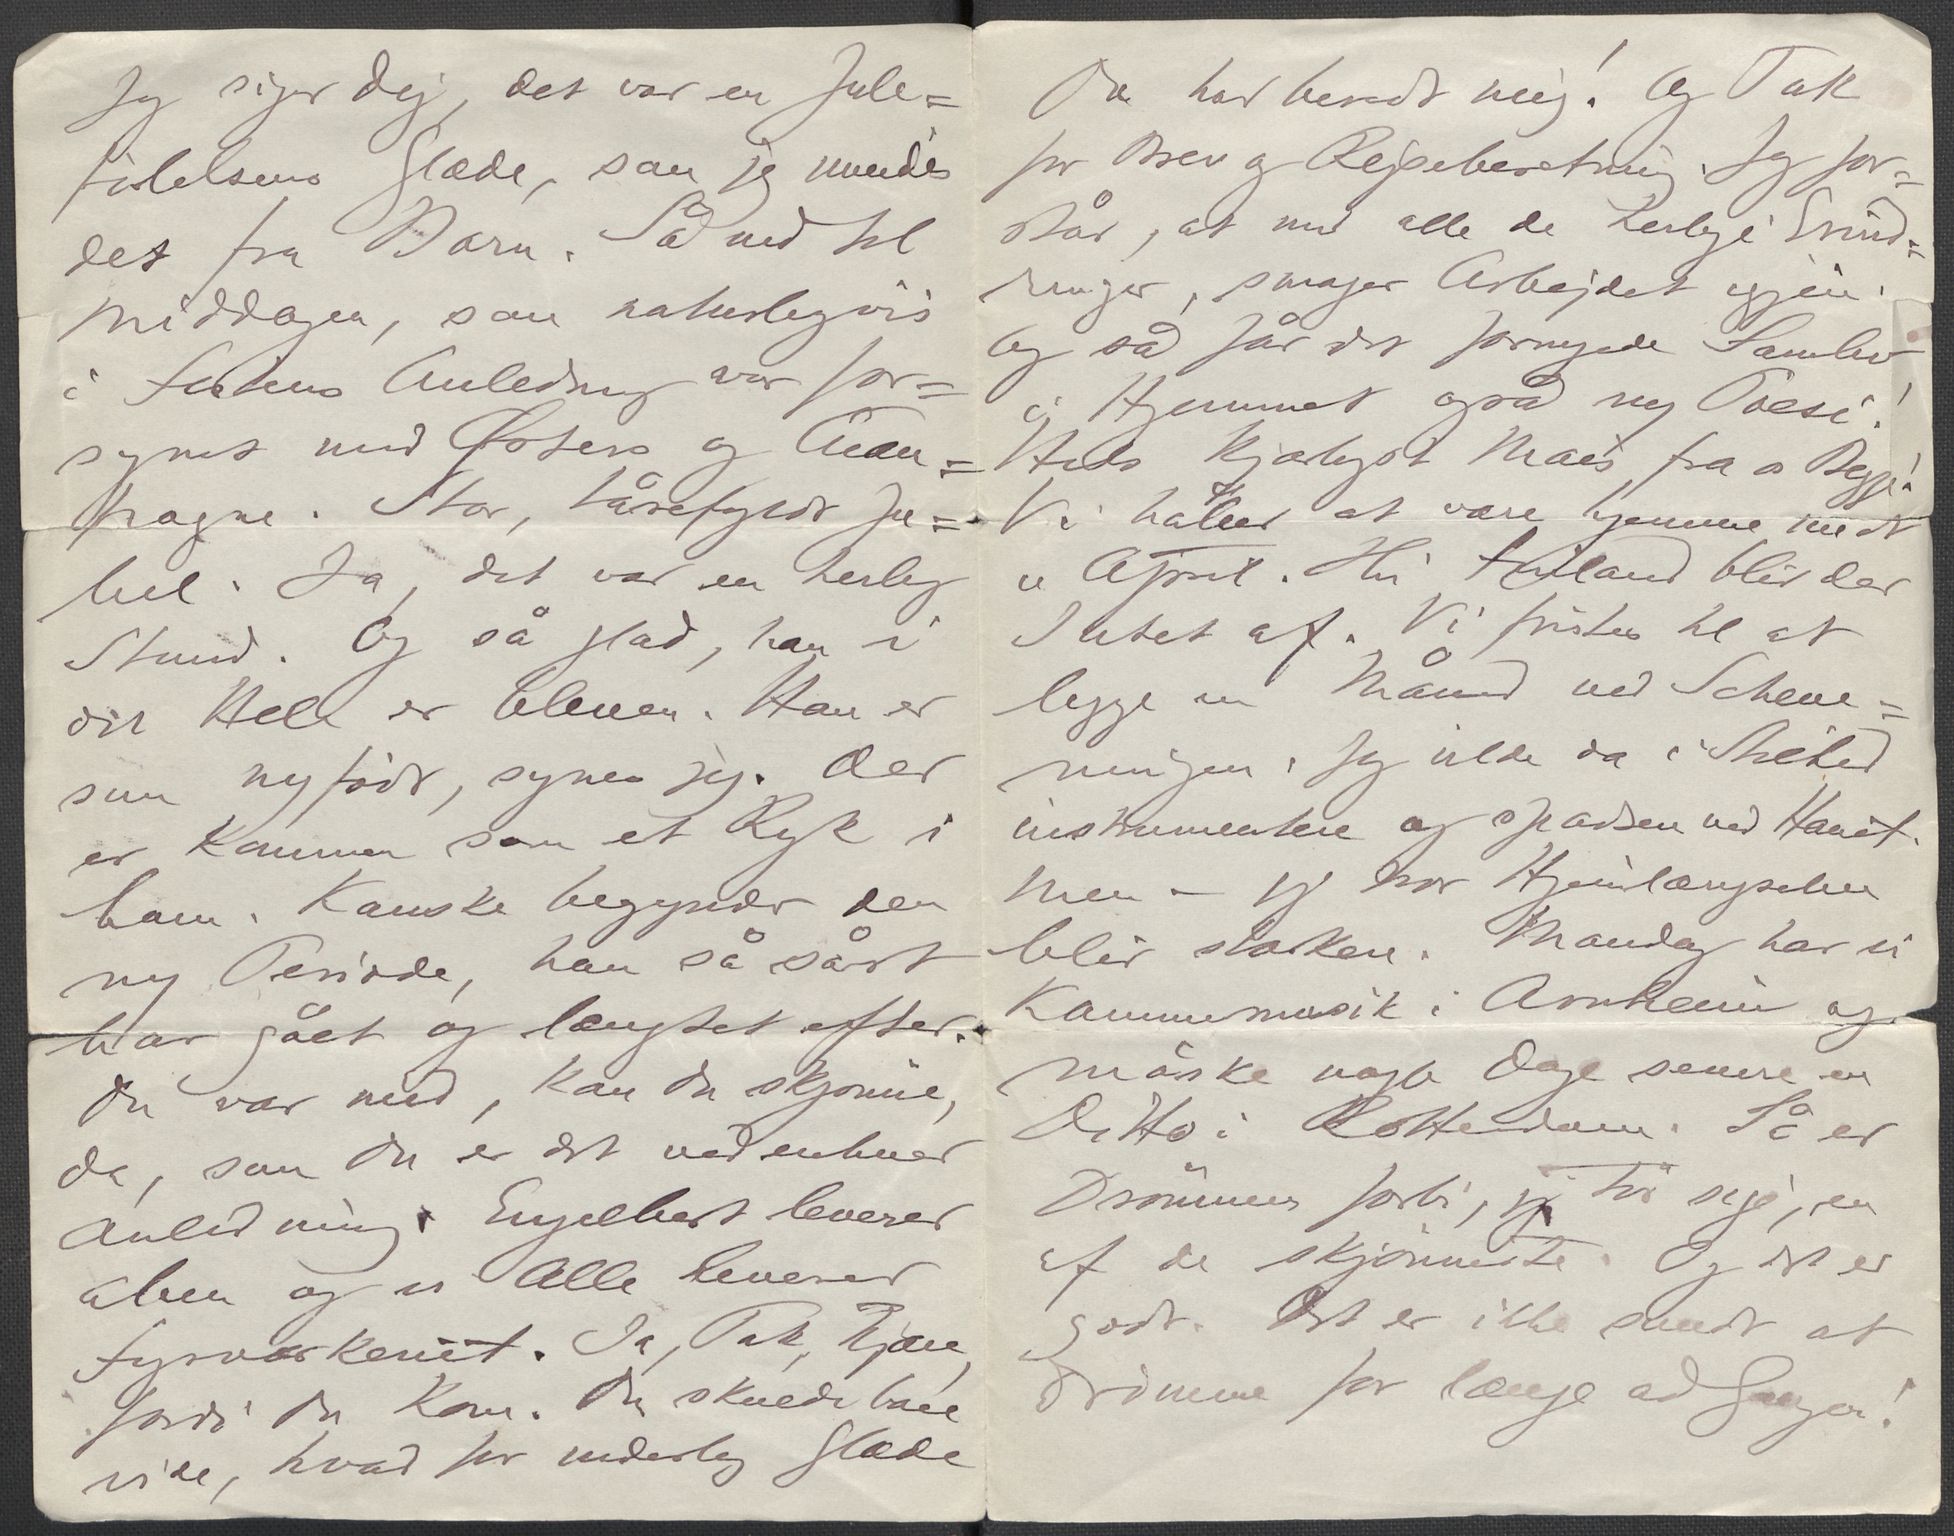 Jeg siger Dig, det var en Jule=
følelsens Glæde, som jeg mindes
det fra Barn. Så ned til
Middagen, som naturligvis
i Festens Anledning var for=
synet med Østers og Cham=
pagne. Stor, tårefyldt Ju=
bel. Ja, det var en herlig
Stund. Og så glad, han i
det Hele er bleven. Han er
som nyfødt, synes jeg. Der
er kommen som et Ryk i
ham. Kanske begynder den
ny Periode, han så sårt
har gået og længtet efter.
Du var med, kan Du skjønne,
da, som Du er det ved enhver
Anledning. Engelbert leverer
aben og vi Alle leverer
fyrværkeriet. Ja, Tak, Kjære,
fordi Du kom. Du skulde bare
vide, hvad for inderlig Glæde
Du har beredt mig! Og Tak
for Brev og Rejseberetning. Jeg for=
står, at med alle de herlige Erind=
ringer, smager Arbejdet igjen.
Og så får det fornyede Samliv
i Hjemmet også ny Poesi!
Hils kjærligst Mais fra os Begge!
Vi håber at være hjemme midt
i April. Hu Finland blir der
Intet af. Vi fristes til at
legge en Måned ved Scheve=
ningen. Jeg vilde da i Stilhed
instrumentere og spadsere ved Havet.
Men – jeg tror Hjemlængselen
blir stærkere. Mandag har vi
Kammermusik i Arnheim og
måske nogle Dage senere en
Ditto i Rotterdam. Så er
Drømmen forbi, jeg tør sige, en
af de skjønneste. Og det er
godt. Det er ikke sundt at
drømme for længe ad Gangen!